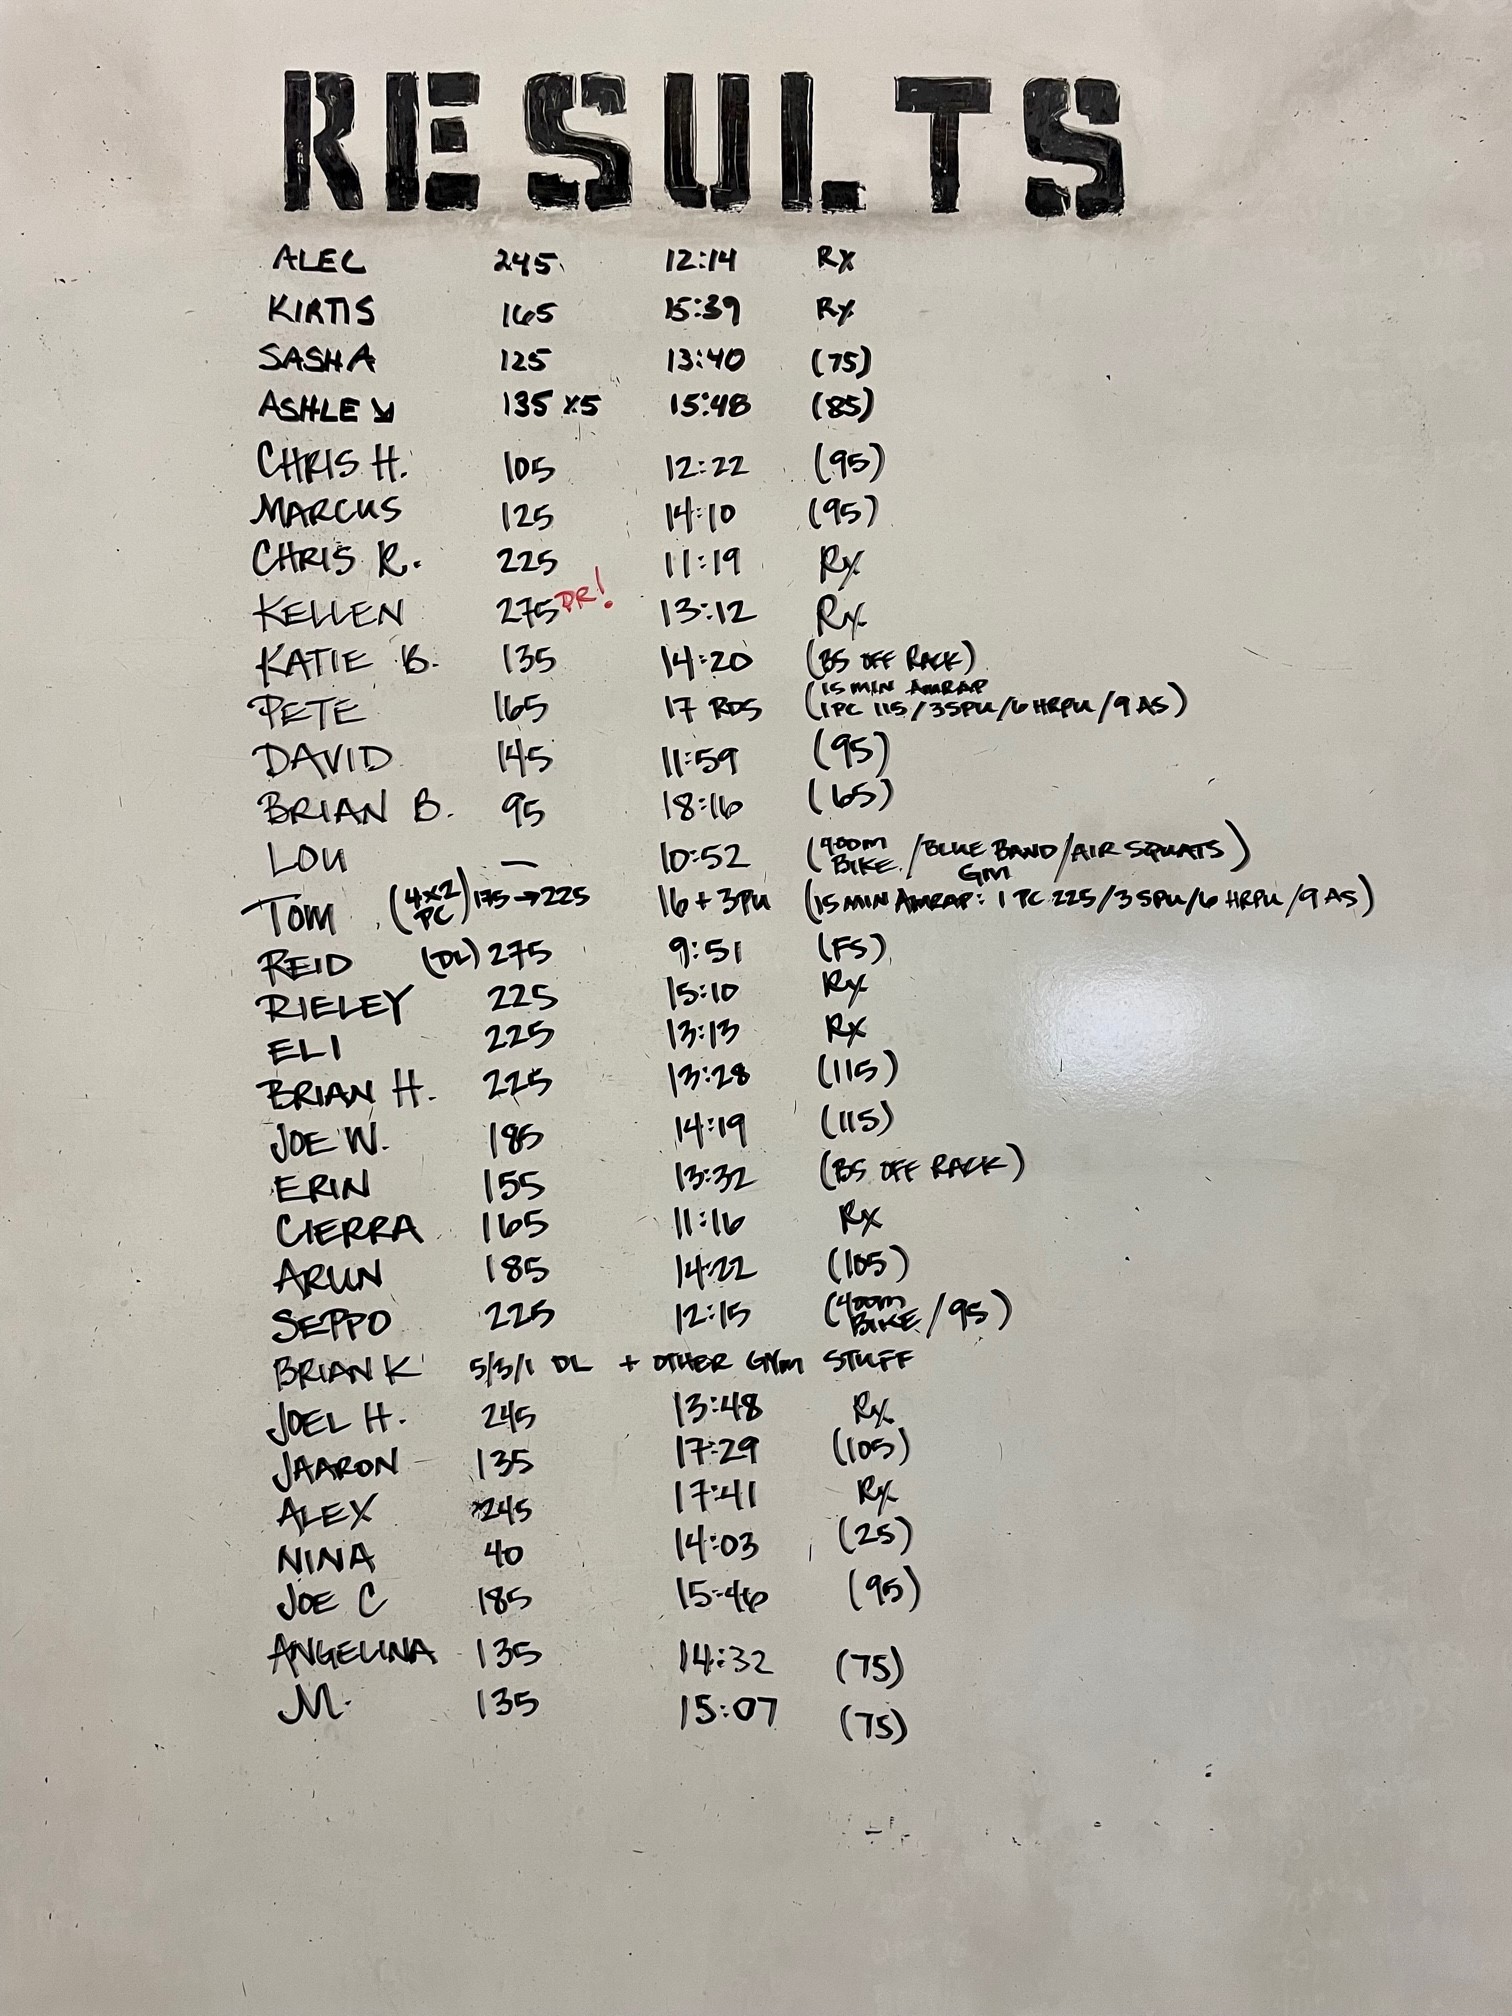 RESULTS
ALEC 245 12:14 Rx
KIRTIS 165 15:39 Rx
SASHA 125 13:40 (75)
ASHLEY 135 x5 15:48 (85)
CHRIS H. 105 12:22 (95)
MARCUS 125 14:10 (95)
CHRIS R. 225 11:19 Rx
KELLEN 275 PR! 13:12 Rx
KATIE B. 135 14:20 (BS OFF RACK)
PETE 165 17 RDS (15 MIN AMRAP
1 PC 115/3 SPU/6 HRPU/9 AS)
DAVID 145 11:59 (95)
BRIAN B. 95 18:16 (65)
LOU — 10:52 (400m BIKE/BLUE BAND GM/AIR SQUATS)
TOM (4x2 PC) 175→225 16 + 3PU (15 MIN AMRAP: 1 PC 225/3 SPU/6 HRPU/9 AS)
REID (DL) 275 9:51 (FS)
RIELEY 225 15:10 Rx
ELI 225 13:13 Rx
BRIAN H. 225 13:28 (115)
JOE W. 185 14:19 (115)
ERIN 155 13:32 (BS OFF RACK)
CIERRA 165 11:16 Rx
ARUN 185 14:22 (105)
SEPPO 225 12:15 (400m BIKE/95)
BRIAN K 5/3/1 DL + OTHER GYM STUFF
JOEL H. 245 13:48 Rx
JAARON 135 17:29 (105)
ALEX 245 17:41 Rx
NINA 40 14:03 (25)
JOE C 185 15:46 (95)
ANGELINA 135 14:32 (75)
M. 135 15:07 (75)